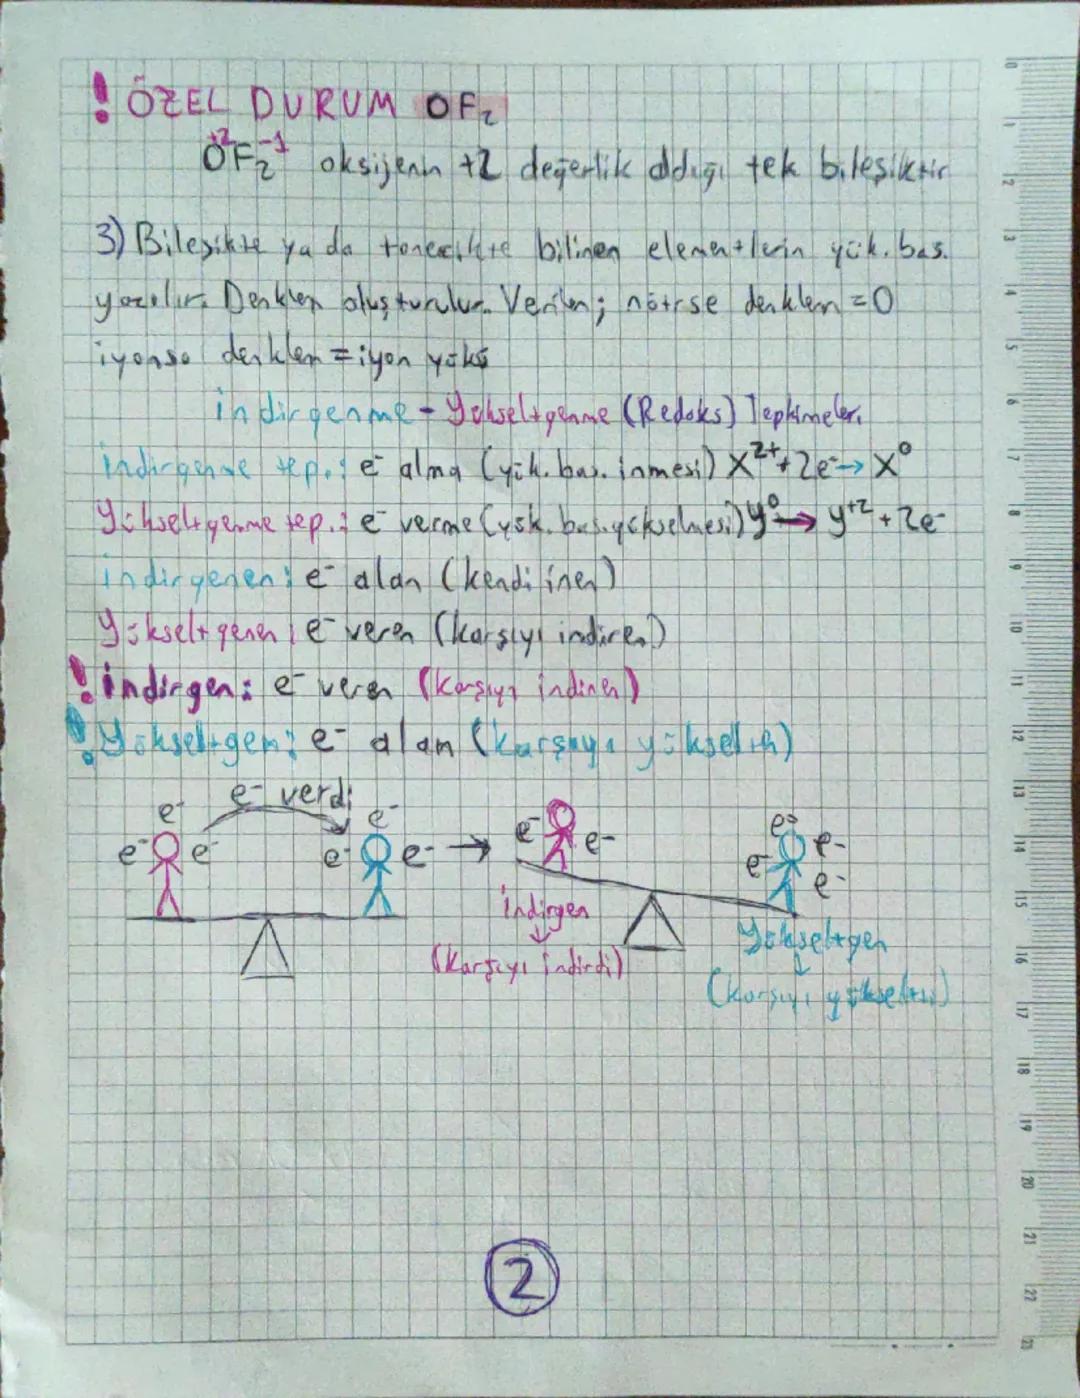 ! ÖZEL DURUM OF2
+2 -1
OF2 oksijenin +2 değerlik aldığı tek bileşiktir
3) Bileşikte ya da tanecikte bilinen elementlerin yük. bas.
yazılır. Denklem oluşturulur. Verilen; nötrse denklem = 0
iyonsa denklem = iyon yükü
indirgenme - Yükseltgenme (Redoks) Tepkimeleri
indirgenme tep.: e- alma (yük. bas. inmesi) X2+ + 2e- → X0
Yükseltgenme tep.: e- verme (yük. bas. yükselmesi) y0 → y+2 + 2e-
indirgenen: e- alan (kendi inen)
Yükseltgenen: e- veren (karşıyı indiren)
! İndirgen: e- veren (karşıyı indiren)
! Yükseltgen: e- alan (karşıyı yükselten)
e- verdi
e- e- e- e- e- e- → e- e- e- e- e- e-
indirgen
Yükseltgen
(Karşıyı indirdi)
(karşıyı yükseltti)
2
10 1 2 3 4 5 6 7 8 9 10 11 12 13 14 15 16 17 18 19 20 21 22 23